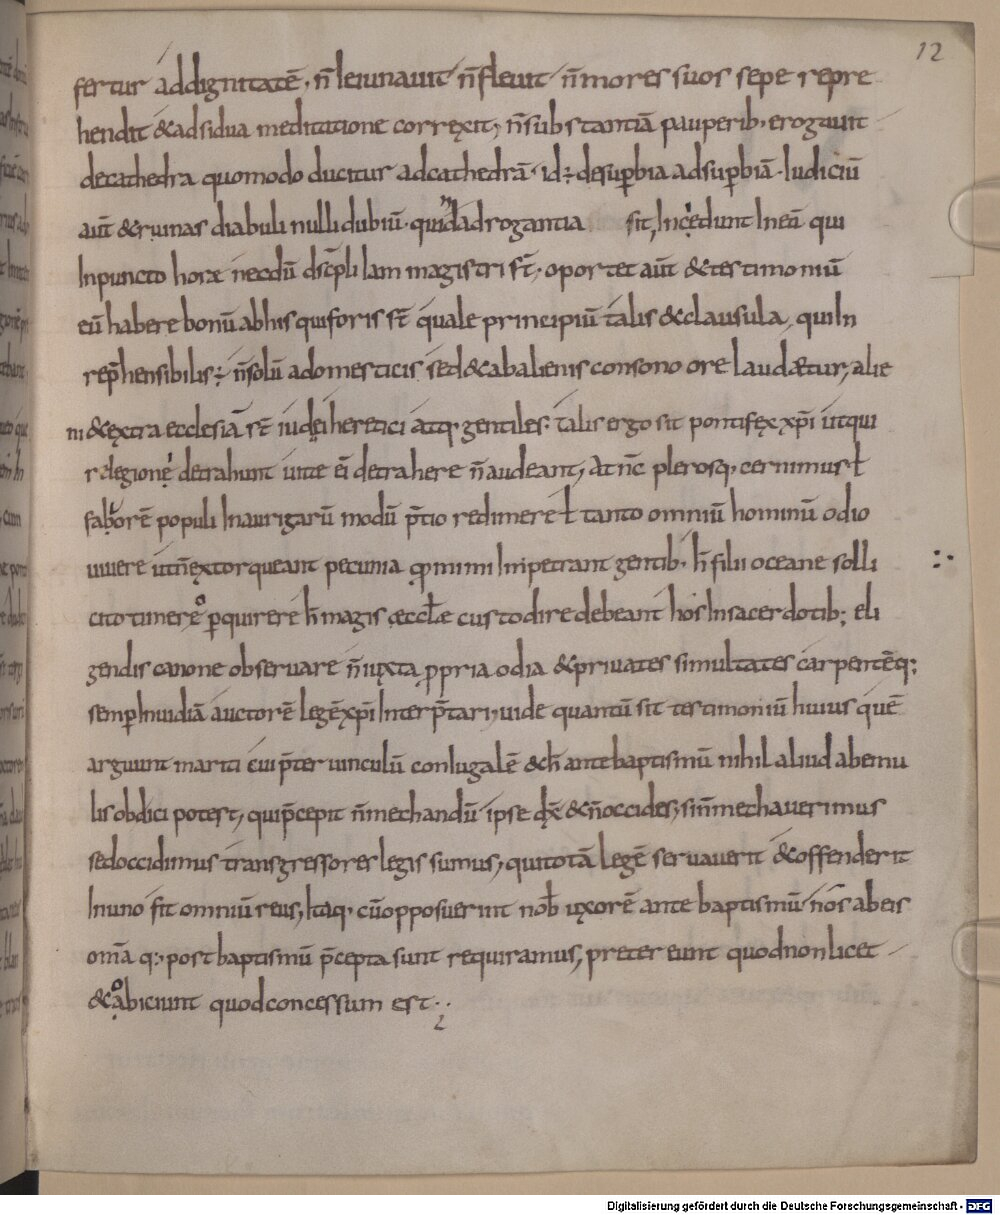 12
fertur ad dignitatē, n̄ ieiunauit n̄ fleuit n̄ mores suos sepe repre
hendit & adsidua meditatione corręxit, n̄ substantiā pauperib· erogauit
de cathedra quomodo ducitur ad cathedrā· id ÷ de sup̄bia ad sup̄biā· Iudiciū
aūt & ruinas diabuli nulli dubiū· quin ad adrogantia sit, Incedunt In eū qui
In puncto horæ necdū disc̄pli iam magistri s̄t, oportet aūt & testimoniū
eū habere bonū ab his qui foris s̄t quale principiū talis & clausula, qui In
rep̄hensibilis ÷ n̄ solū a domesticis sed & ab alienis consono ore laudætur, alie
ni & extra ecclesiā s̄t iudei heretici atq; gentiles. talis ergo sit pontifęx xp̄i ut qui
relegionē detrahunt uitæ ei detrahere n̄ audeant, At n̄c plerosq; cernimus ł
fabore populi In aurigarū modū p̄tio redimere ł tanto omniū hominū odio
uiuere ut n̄ extorqueant pecunia quo mimi Inpetrant gentib· h̄ filii oceane solli
cito timere perquirere h̄ magis æccłe custodire debeant hos In sacerdotib; eli
gendis canone obseruare n̄ iuxta propria odia & priuates simultates carpentēq;
semp̄ Inuidiā auctorē legē xp̄i Interp̄tari, uide quantū sit testimoniū huius quē
arguunt mariti cui p̄ter uinculū coniugalē & h̄ ante baptismū nihil aliud ab emu
lis obdici potest, qui p̄cepit n̄ mechandū ipse dx̄ & n̄ occides, si n̄ mechauerimus
sed occidimus transgressores legis sumus, qui totā legē seruauerit & offenderit
In uno fit omniū reus, Itaq; cū opposuerint nob̄ uxorē ante baptismū nos ab eis
omā q; post baptismū p̄cepta sunt requiramus, preter eunt quod non licet
& obiciunt quod concessum est
Digitalisierung gefördert durch die Deutsche Forschungsgemeinschaft - DFG